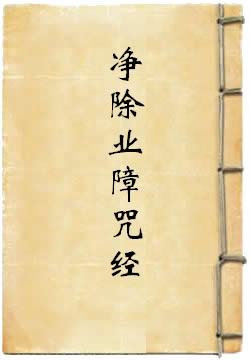 净除业障咒经